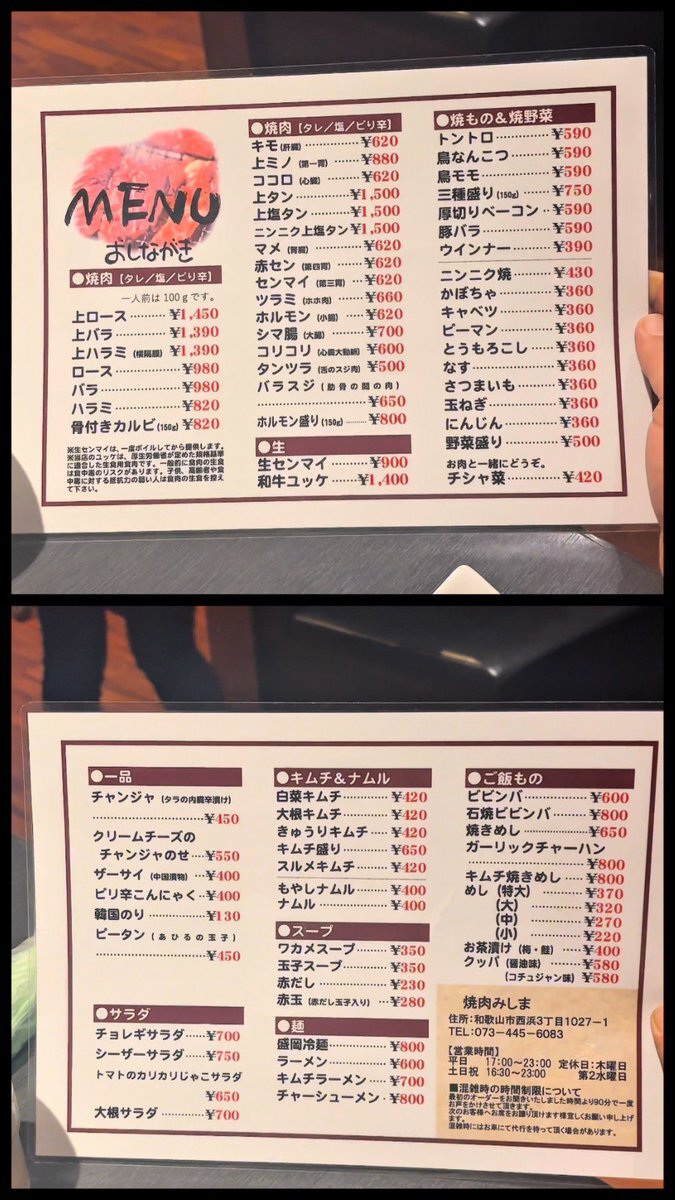 MENU
おしながき
●焼肉【タレ/塩/ピリ辛】
一人前は100gです。
上ロース………¥1,450
上バラ…………¥1,390
上ハラミ(横隔膜)…¥1,390
ロース…………¥980
バラ……………¥980
ハラミ…………¥820
骨付きカルビ(150g)¥820
※生センマイは、一度ボイルしてから提供します。
※当店のユッケは、厚生労働省が定めた規格基準
に適合した生食用食肉です。一般的に食肉の生食
は食中毒のリスクがあります。子供、高齢者や食
中毒に対する抵抗力の弱い人は食肉の生食を控え
て下さい。
●焼肉【タレ/塩/ピリ辛】
キモ(肝臓)………¥620
上ミノ(第一胃)……¥880
ココロ(心臓)……¥620
上タン…………¥1,500
上塩タン………¥1,500
ニンニク上塩タン…¥1,500
マメ(腎臓)………¥620
赤セン(第四胃)……¥620
センマイ(第三胃)…¥620
ツラミ(ホホ肉)……¥660
ホルモン(小腸)……¥620
シマ腸(大腸)……¥700
コリコリ(心臓大動脈)…¥600
タンツラ(舌のスジ肉)…¥500
バラスジ(肋骨の間の肉)
……………………¥650
ホルモン盛り(150g)………¥800
●生
生センマイ………¥900
和牛ユッケ……¥1,400
●焼もの&焼野菜
トントロ…………¥590
鳥なんこつ………¥590
鳥モモ……………¥590
三種盛り(150g)……¥750
厚切りベーコン…¥590
豚バラ……………¥590
ウインナー………¥390
ニンニク焼………¥430
かぼちゃ…………¥360
キャベツ…………¥360
ピーマン…………¥360
とうもろこし……¥360
なす………………¥360
さつまいも………¥360
玉ねぎ……………¥360
にんじん…………¥360
野菜盛り…………¥500
お肉と一緒にどうぞ。
チシャ菜…………¥420
●一品
チャンジャ(タラの内臓辛漬け)
……………………¥450
クリームチーズの
チャンジャのせ…¥550
ザーサイ(中国漬物)…¥400
ピリ辛こんにゃく…¥400
韓国のり…………¥130
ピータン(あひるの玉子)
……………………¥450
●サラダ
チョレギサラダ……¥700
シーザーサラダ……¥750
トマトのカリカリじゃこサラダ
¥650
大根サラダ………¥700
●キムチ&ナムル
白菜キムチ………¥420
大根キムチ………¥420
きゅうりキムチ…¥420
キムチ盛り………¥650
スルメキムチ……¥420
もやしナムル……¥400
ナムル……………¥400
●スープ
ワカメスープ……¥350
玉子スープ………¥350
赤だし……………¥230
赤玉(赤だし玉子入り)…¥280
●麺
盛岡冷麺…………¥800
ラーメン…………¥600
キムチラーメン…¥700
チャーシューメン…¥800
●ご飯もの
ビビンバ…………¥600
石焼ビビンバ……¥800
焼きめし…………¥650
ガーリックチャーハン
……………………¥800
キムチ焼きめし…¥800
めし(特大)………¥370
(大)…………¥320
(中)…………¥270
(小)…………¥220
お茶漬け(梅・鮭)…¥400
クッパ(醤油味)……¥580
(コチュジャン味)¥580
焼肉みしま
住所:和歌山市西浜3丁目1027-1
TEL:073-445-6083
【営業時間】
平日 17:00〜23:00 定休日:木曜日
土日祝 16:30〜23:00 第2水曜日
■混雑時の時間制限について
最初のオーダーをお聞きいたしました時間より90分で一度
お声をかけさせて頂きます。
次のお客様へお席をお譲り頂けます様宜しくお願い申し上げ
ます。
混雑時にはお車にて代行を待って頂く場合があります。